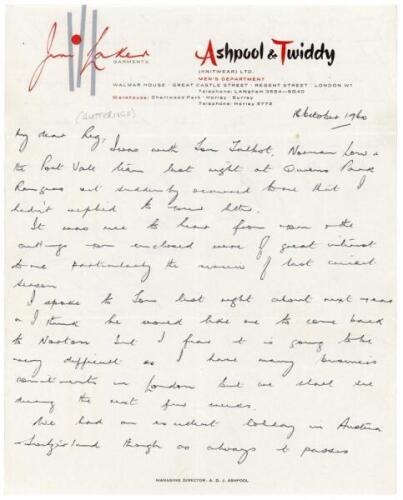 Jim Laker
GARMENTS
Ashpool & Twiddy
(KNITWEAR) LTD.
MEN'S DEPARTMENT
WALMAR HOUSE · GREAT CASTLE STREET · REGENT STREET · LONDON W1
Telephone: LANgham 3984—5040
Warehouse: Charlwood Park · Horley · Surrey
Telephone: Horley 3772
(GUTTERIDGE)
October 1960
My dear Reg, I was with Tom Talbot, Norman Low &
the Port Vale team last night at Queens Park
Rangers & it suddenly occurred to me that I
hadn't replied to your letter.
It was nice to hear from you & the
cuttings you enclosed were of great interest
to me particularly the review of last cricket
season.
I spoke to Tom last night about next year
& I think he would like me to come back
to Norton but I fear it is going to be
very difficult as I have many business
commitments in London but we shall see
during the next few weeks.
We had an excellent holiday in Austria
& Switzerland though as always it passes
MANAGING DIRECTOR: A. D. J. ASHPOOL